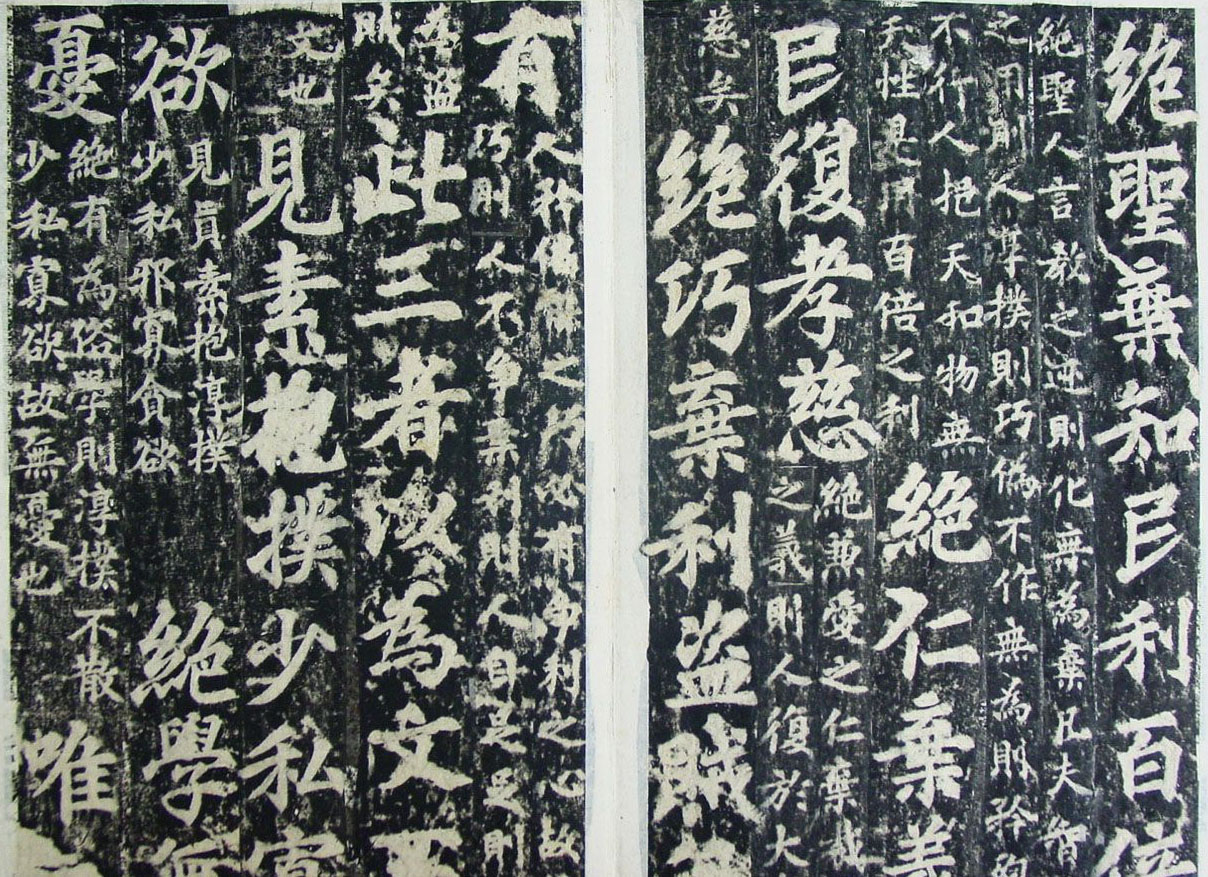 絕聖棄知民利百倍
絕聖人言教之迹則化無為棄凡夫智
之用則人淳撲則巧偽不作無為則矜徇
不行人抱天和物無
天性是有百倍之利
絕仁棄義
民復孝慈
絕兼愛之仁棄裁
之義則人復於大
慈矣
絕巧棄利盜賊無
有
人矜偽之巧必有爭利之心故
巧則人不爭棄利則人自足足則
無盜
賊矣
此三者以為文不
文也
見素抱撲少私寡
欲
見真素抱淳撲
少私邪寡貪欲
絕學無
憂
絕有為俗學則淳撲不散
少私寡欲故無憂也
唯